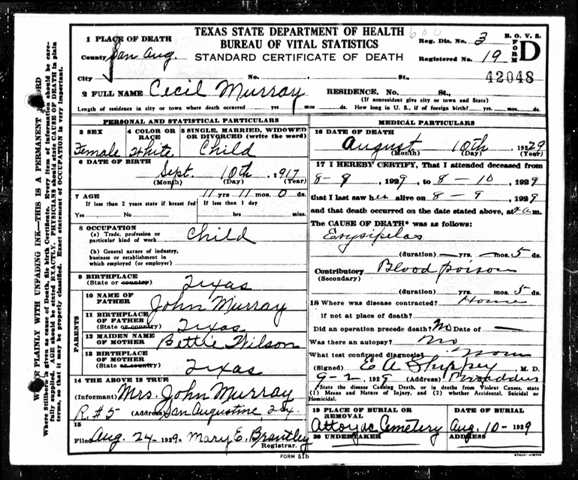 TEXAS STATE DEPARTMENT OF HEALTH
BUREAU OF VITAL STATISTICS
STANDARD CERTIFICATE OF DEATH
Reg. Dis. No. 3
Registered No. 19
B. O. V. S.
FORM D
42048
1 PLACE OF DEATH
County San Aug.
City No. St.
2 FULL NAME Cecil Murray RESIDENCE. No. St.
(If nonresident give city or town and State)
Length of residence in city or town where death occurred yrs. mos. ds. How long in U. S., if of foreign birth? yrs. mos. ds.
PERSONAL AND STATISTICAL PARTICULARS
3 SEX 4 COLOR OR RACE 5 SINGLE, MARRIED, WIDOWED or DIVORCED (write the word)
Female White Child
6 DATE OF BIRTH
Sept. 10th 1917
(Month) (Day) (Year)
7 AGE 11 yrs 11 mos. 0 ds.
If less than 2 years state if breast fed If less than 1 day
Yes No hrs. min.
8 OCCUPATION
(a) Trade, profession or particular kind of work Child
(b) General nature of industry, business or establishment in which employed (or employer)
9 BIRTHPLACE
(State or country) Texas
PARENTS
10 NAME OF FATHER John Murray
11 BIRTHPLACE OF FATHER
(State or country) Texas
12 MAIDEN NAME OF MOTHER Bettie Wilson
13 BIRTHPLACE OF MOTHER
(State or country) Texas
14 THE ABOVE IS TRUE
Informant Mrs. John Murray
R. #5 (Address) San Augustine Tex.
15
Filed Aug. 24 - 1929. Mary E. Brantley
Registrar.
MEDICAL PARTICULARS
16 DATE OF DEATH
August 10th 1929
(Month) (Day) (Year)
17 I HEREBY CERTIFY, That I attended deceased from
8 - 8 1929 to 8 - 10 1929
that I last saw her alive on 8 - 9 1929
and that death occurred on the date stated above, at m.
The CAUSE OF DEATH* was as follows:
Erysipelas
(duration) yrs. mos. 5 ds.
Contributory Blood Poison
(Secondary)
(duration) yrs. mos. 5 ds.
18 Where was disease contracted? Home
if not at place of death?
Did an operation precede death? No Date of
Was there an autopsy? No
What test confirmed diagnosis?
(Signed) M. D.
1929 (Address) Broaddus
State the disease Causing Death, or in deaths from Violent Causes, state (1) Means and Nature of Injury, and (2) whether Accidental, Suicidal or Homicidal.
19 PLACE OF BURIAL OR REMOVAL DATE OF BURIAL
Attoyac Cemetery Aug. 10 - 1929
20 UNDERTAKER ADDRESS
FORM D16